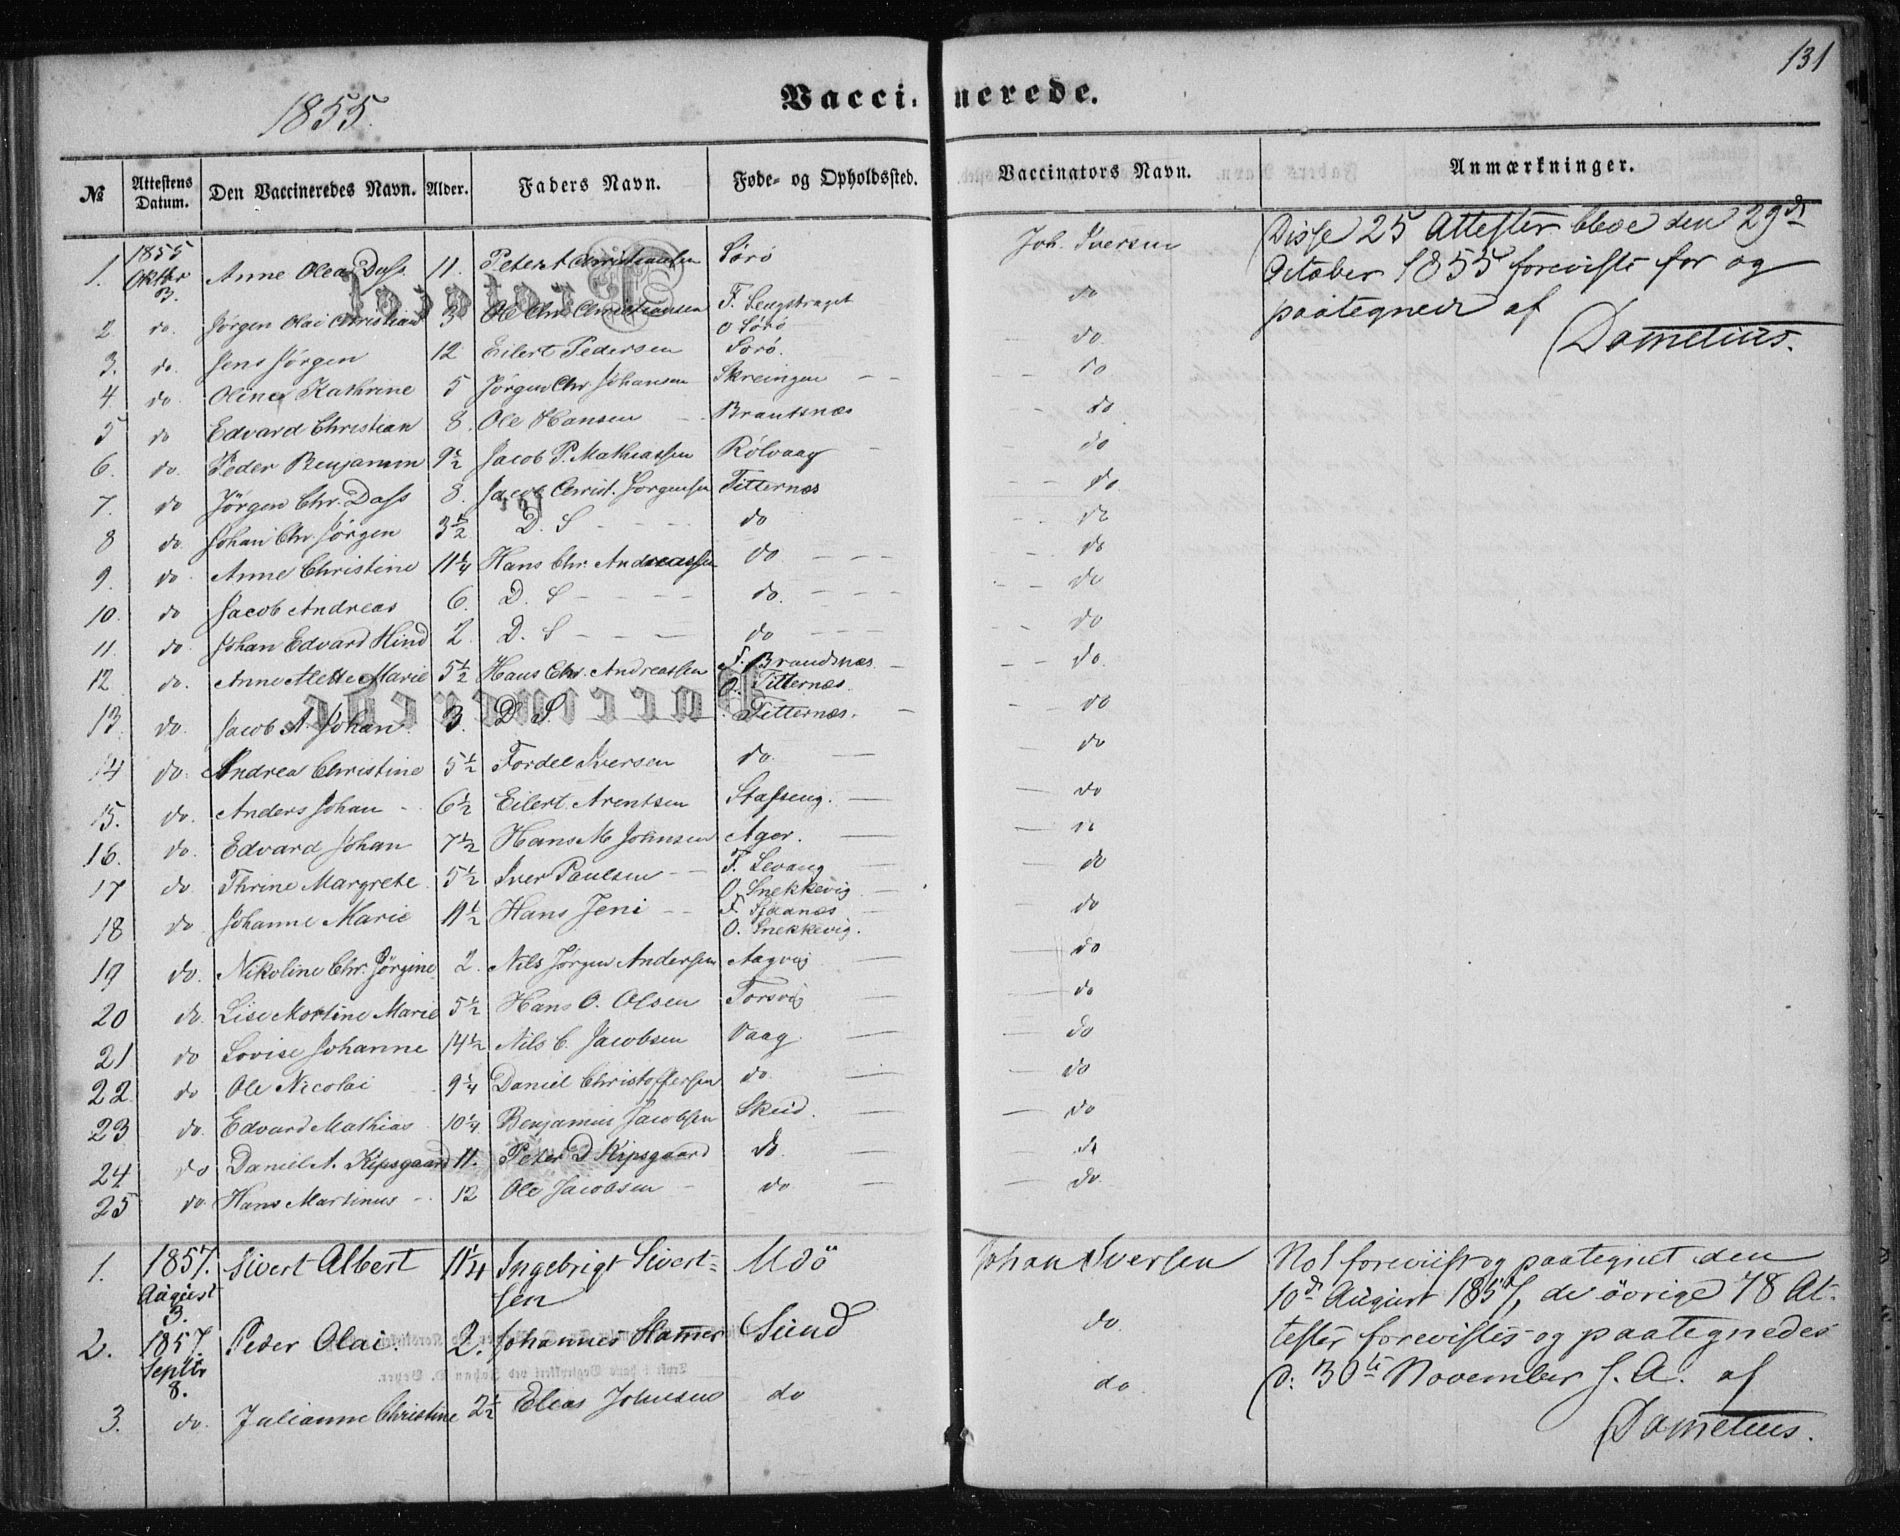 131
1855.
Vaccinerede.
№ Attestens Datum. Den Vaccineredes Navn. Alder. Faders Navn. Føde- og Opholdssted. Vaccinators Navn. Anmærkninger.
1. 1855 Oktbr 3. Anne Olea Dass 11. Peter A Christiansen Sörö Joh. Iversen
2. do. Jörgen Olai Christian 3 Ole Chr. Christiansen F. Lengstraget O Sörö do
3. do. Jens Jörgen 12 Eilert Pedersen Sörö. do
4. do. Oline Kathrine 5 Jörgen Chr. Johansen Skreingen do
5 do Edvard Christian 8. Ole Hansen Brantsnæs do
6. do. Peder Benjamin 9½ Jacob P. Mathiassen Rölvaag do
7. do Jörgen Chr. Dass 8. Jacob Christ. Jörgensen Titternæs do
8 do. Johan Chr. Jörgen 3½ D. S do do
9. do. Anne Christine 11¼ Hans Chr. Andreassen do do
10. do Jacob Andreas 6. D. S do. do
11. do. Johan Edvard Hind 2. D. S do do
12. do. Anne Alette Marie 5½ Hans Chr. Andreassen F. Brandsnæs O. Titternæs. do.
13. do. Jacob A. Johan 3. D S. Titternæs. do
14 do. Andrea Christine 5½ Fordel Iversen do. do
15. do. Anders Johan 6½ Eilert Arentsen Stafseng. do
16. do. Edvard Johan 7½ Hans M Johnsen Ager. do
17 do. Thrine Margrete 5½ Iver Paulsen F. Levang O. Snekkevig do
18 do. Johanne Marie 11½ Hans Jeni F. O. Snekkevig. do
19 do. Nikoline Chr. Jörgine 2. Nils Jörgen Andersen Aagvig do
20 do. Lise Martine Marie 5½ Hans O. Olsen Torsvig do
21 do Lovise Johanne 14½ Nils C. Jacobsen Vaag do
22. do Ole Nicolai 9¼ Daniel Christoffersen do. do
23 do. Edvard Mathias 10¼ Benjamin Jacobsen Skeid. do
24 do Daniel A. Kipsgaard 11. Peter D Kipsgaard do do
25 do. Hans Martinus 12 Ole Jacobsen do. do
Disse 25 Attester bleve den 29de
October 1855 foreviste for og
paategnede af
Dometius.
1. 1857. August 3. Sivert Albert 11¼ Ingebrigt Sivertsen Udö Johan Iversen
2. 1857. Septbr 8. Peder Olai. 2. Johannes Hammer Sund do.
3. do. Julianne Christine 2½ Elias Johnsen do do
No 1 foreviist og paategnet den
10de August 1857, de övrige 78 At-
tester forevistes og paategnedes
d: 30te November s. A. af
Dometius.